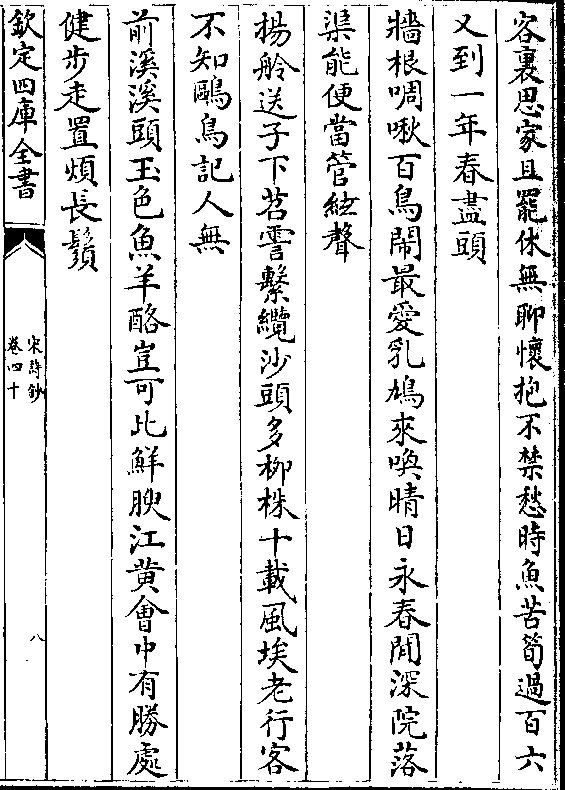 客裏思家且罷休無聊懷抱不禁愁時魚苦筍過百六
又到一年春盡頭
牆根啁啾百鳥鬧最愛乳鳩來喚晴日永春閒深院落
渠能便當管絃聲
揚舲送子下苕霅繫纜沙頭多柳株十載風埃老行客
不知鷗鳥記人無
前溪溪頭玉色魚羊酪豈可比鮮腴江黄會中有勝處
健步走置煩長鬚
欽定四庫全書
宋詩鈔
卷四十
八